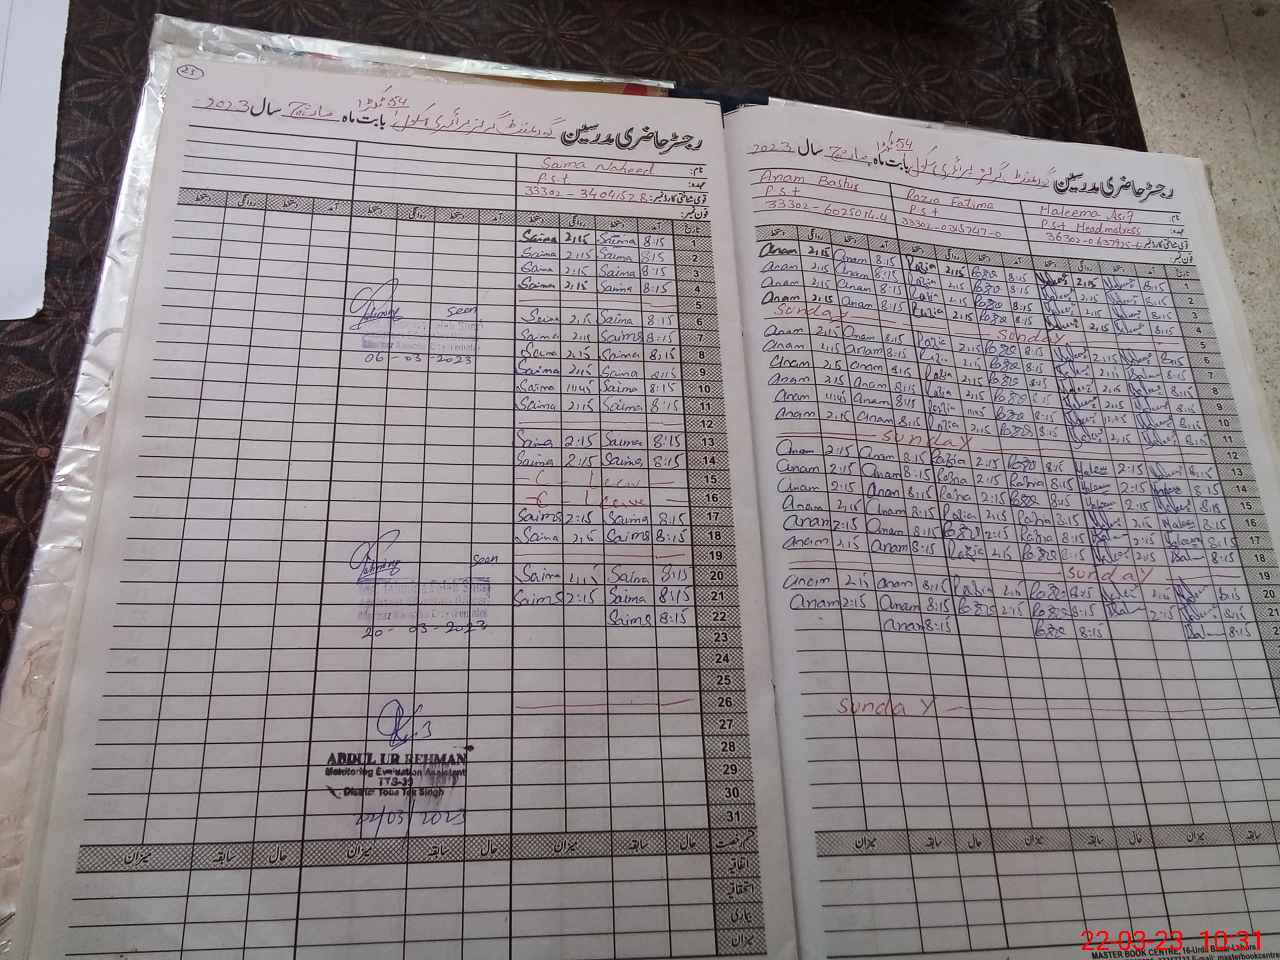 23
رجسٹر حاضری مدرسین گورنمنٹ گرلز پرائمری سکول 54 بابت ماہ مارچ سال 2023
نام: Saima Naheed
عہدہ: P.s.t
قومی شناختی کارڈ نمبر:
فون نمبر:
تاریخ آمد دستخط روانگی دستخط آمد دستخط روانگی دستخط آمد دستخط روانگی دستخط
1 8:15 Saima 2:15 Saima
2 8:15 Saima 2:15 Saima
3 8:15 Saima 2:15 Saima
4 8:15 Saima 2:15 Saima
5
6 8:15 Saima 2:15 Saima
7 8:15 Saima 2:15 Saima
8 8:15 Saima 2:15 Saima
9 8:15 Saima 2:15 Saima
10 8:15 Saima 11:45 Saima
11 8:15 Saima 2:15 Saima
12
13 8:15 Saima 2:15 Saima
14 8:15 Saima 2:15 Saima
15 C Leave
16 C Leave
17 8:15 Saima 2:15 Saima
18 8:15 Saima 2:15 Saima
19
20 8:15 Saima 2:15 Saima
21 8:15 Saima 2:15 Saima
22 8:15 Saima
23
24
25
26
27
28
29
30
31
seen
06-03-2023
seen
20-03-2023
ABDUL UR REHMAN
Monitoring Evaluation Assistant
District Toba Tek Singh
02/03/2023
حال سابقہ میزان حال سابقہ میزان حال سابقہ میزان
اتفاقیہ
استحقاقیہ
بیماری
میزان
رجسٹر حاضری مدرسین گورنمنٹ گرلز پرائمری سکول 54 بابت ماہ مارچ سال 2023
نام: Haleema Asif Razia Fatima Anam Bastus
عہدہ: P.s.t Headmistress P.s.t P.s.t
قومی شناختی کارڈ نمبر: 33302-0345747-0 33302-6025014-4
فون نمبر:
تاریخ آمد دستخط روانگی دستخط آمد دستخط روانگی دستخط آمد دستخط روانگی دستخط
1 8:15 2:15 8:15 2:15 Razia 8:15 Anam 2:15 Anam
2 8:15 2:15 8:15 2:15 Razia 8:15 Anam 2:15 Anam
3 8:15 2:15 8:15 2:15 Razia 8:15 Anam 2:15 Anam
4 8:15 2:15 8:15 2:15 Razia 8:15 Anam 2:15 Anam
5 Sunday Sunday
6 8:15 2:15 8:15 2:15 Razia 8:15 Anam 2:15 Anam
7 8:15 2:15 8:15 2:15 Razia 8:15 Anam 2:15 Anam
8 8:15 2:15 8:15 2:15 Razia 8:15 Anam 2:15 Anam
9 8:15 2:15 8:15 2:15 Razia 8:15 Anam 2:15 Anam
10 8:15 8:15 11:45 Razia 8:15 Anam 11:45 Anam
11 8:15 2:15 8:15 2:15 Razia 8:15 Anam 2:15 Anam
12 Sunday
13 8:15 2:15 8:15 2:15 Razia 8:15 Anam 2:15 Anam
14 8:15 2:15 8:15 Razia 2:15 Razia 8:15 Anam 2:15 Anam
15 8:15 2:15 8:15 2:15 Razia 8:15 Anam 2:15 Anam
16 8:15 2:15 8:15 Razia 2:15 Razia 8:15 Anam 2:15 Anam
17 8:15 2:15 8:15 Razia 2:15 8:15 Anam 2:15 Anam
18 8:15 2:15 8:15 2:15 Razia 8:15 Anam 2:15 Anam
19 Sunday
20 8:15 2:15 8:15 2:15 Razia 8:15 Anam 2:15 Anam
21 8:15 2:15 8:15 2:15 8:15 Anam 2:15 Anam
8:15 8:15 8:15 Anam
Sunday
سابقہ میزان حال سابقہ میزان حال سابقہ میزان
MASTER BOOK CENTRE, 16-Urdu Bazar Lahore
22-03-23 10:31